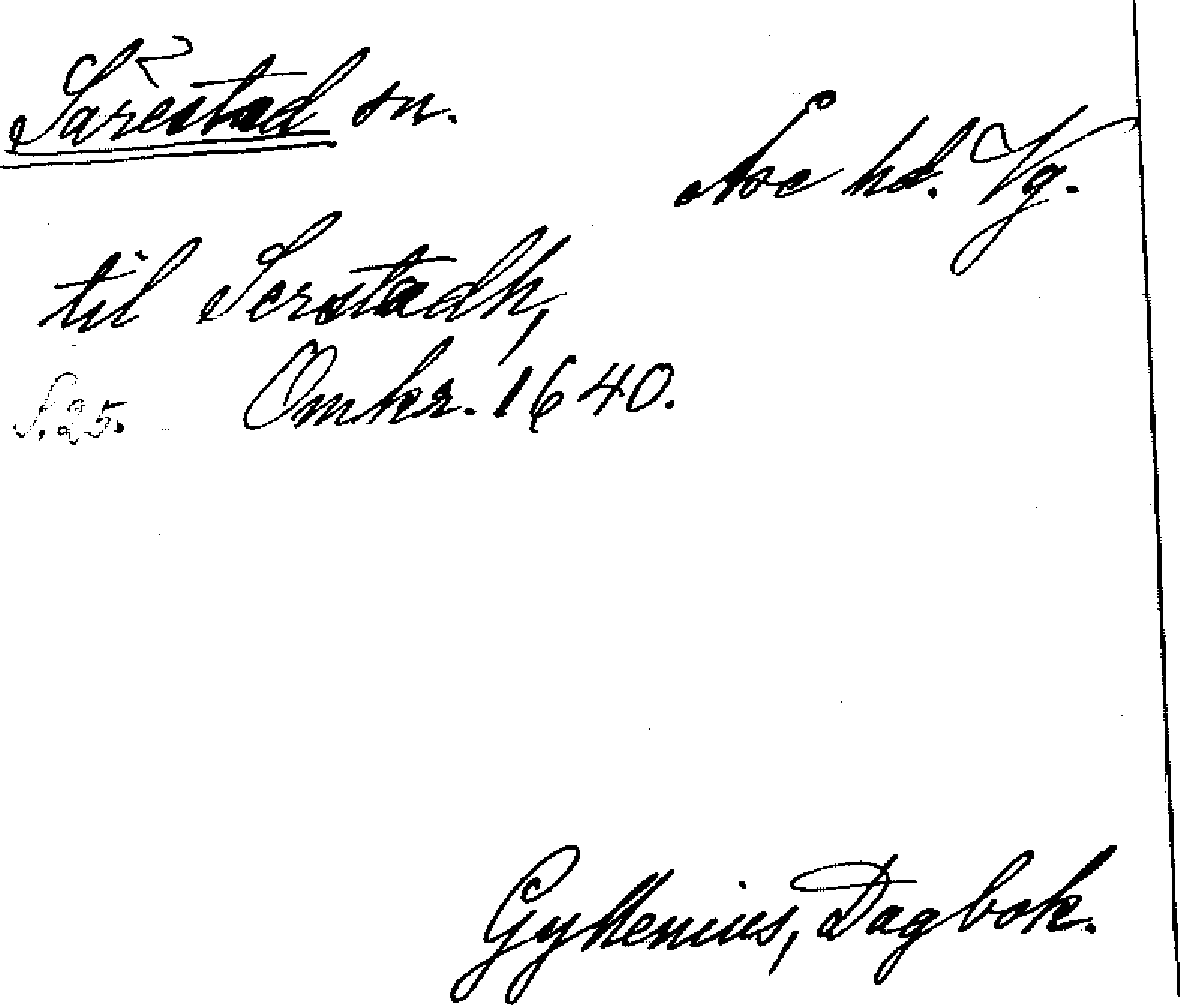 Särestad sn.
Åse hd. Vg.
til Serstadh,
S. 25. Omkr. 1640.
Gyllenius, Dagbok.